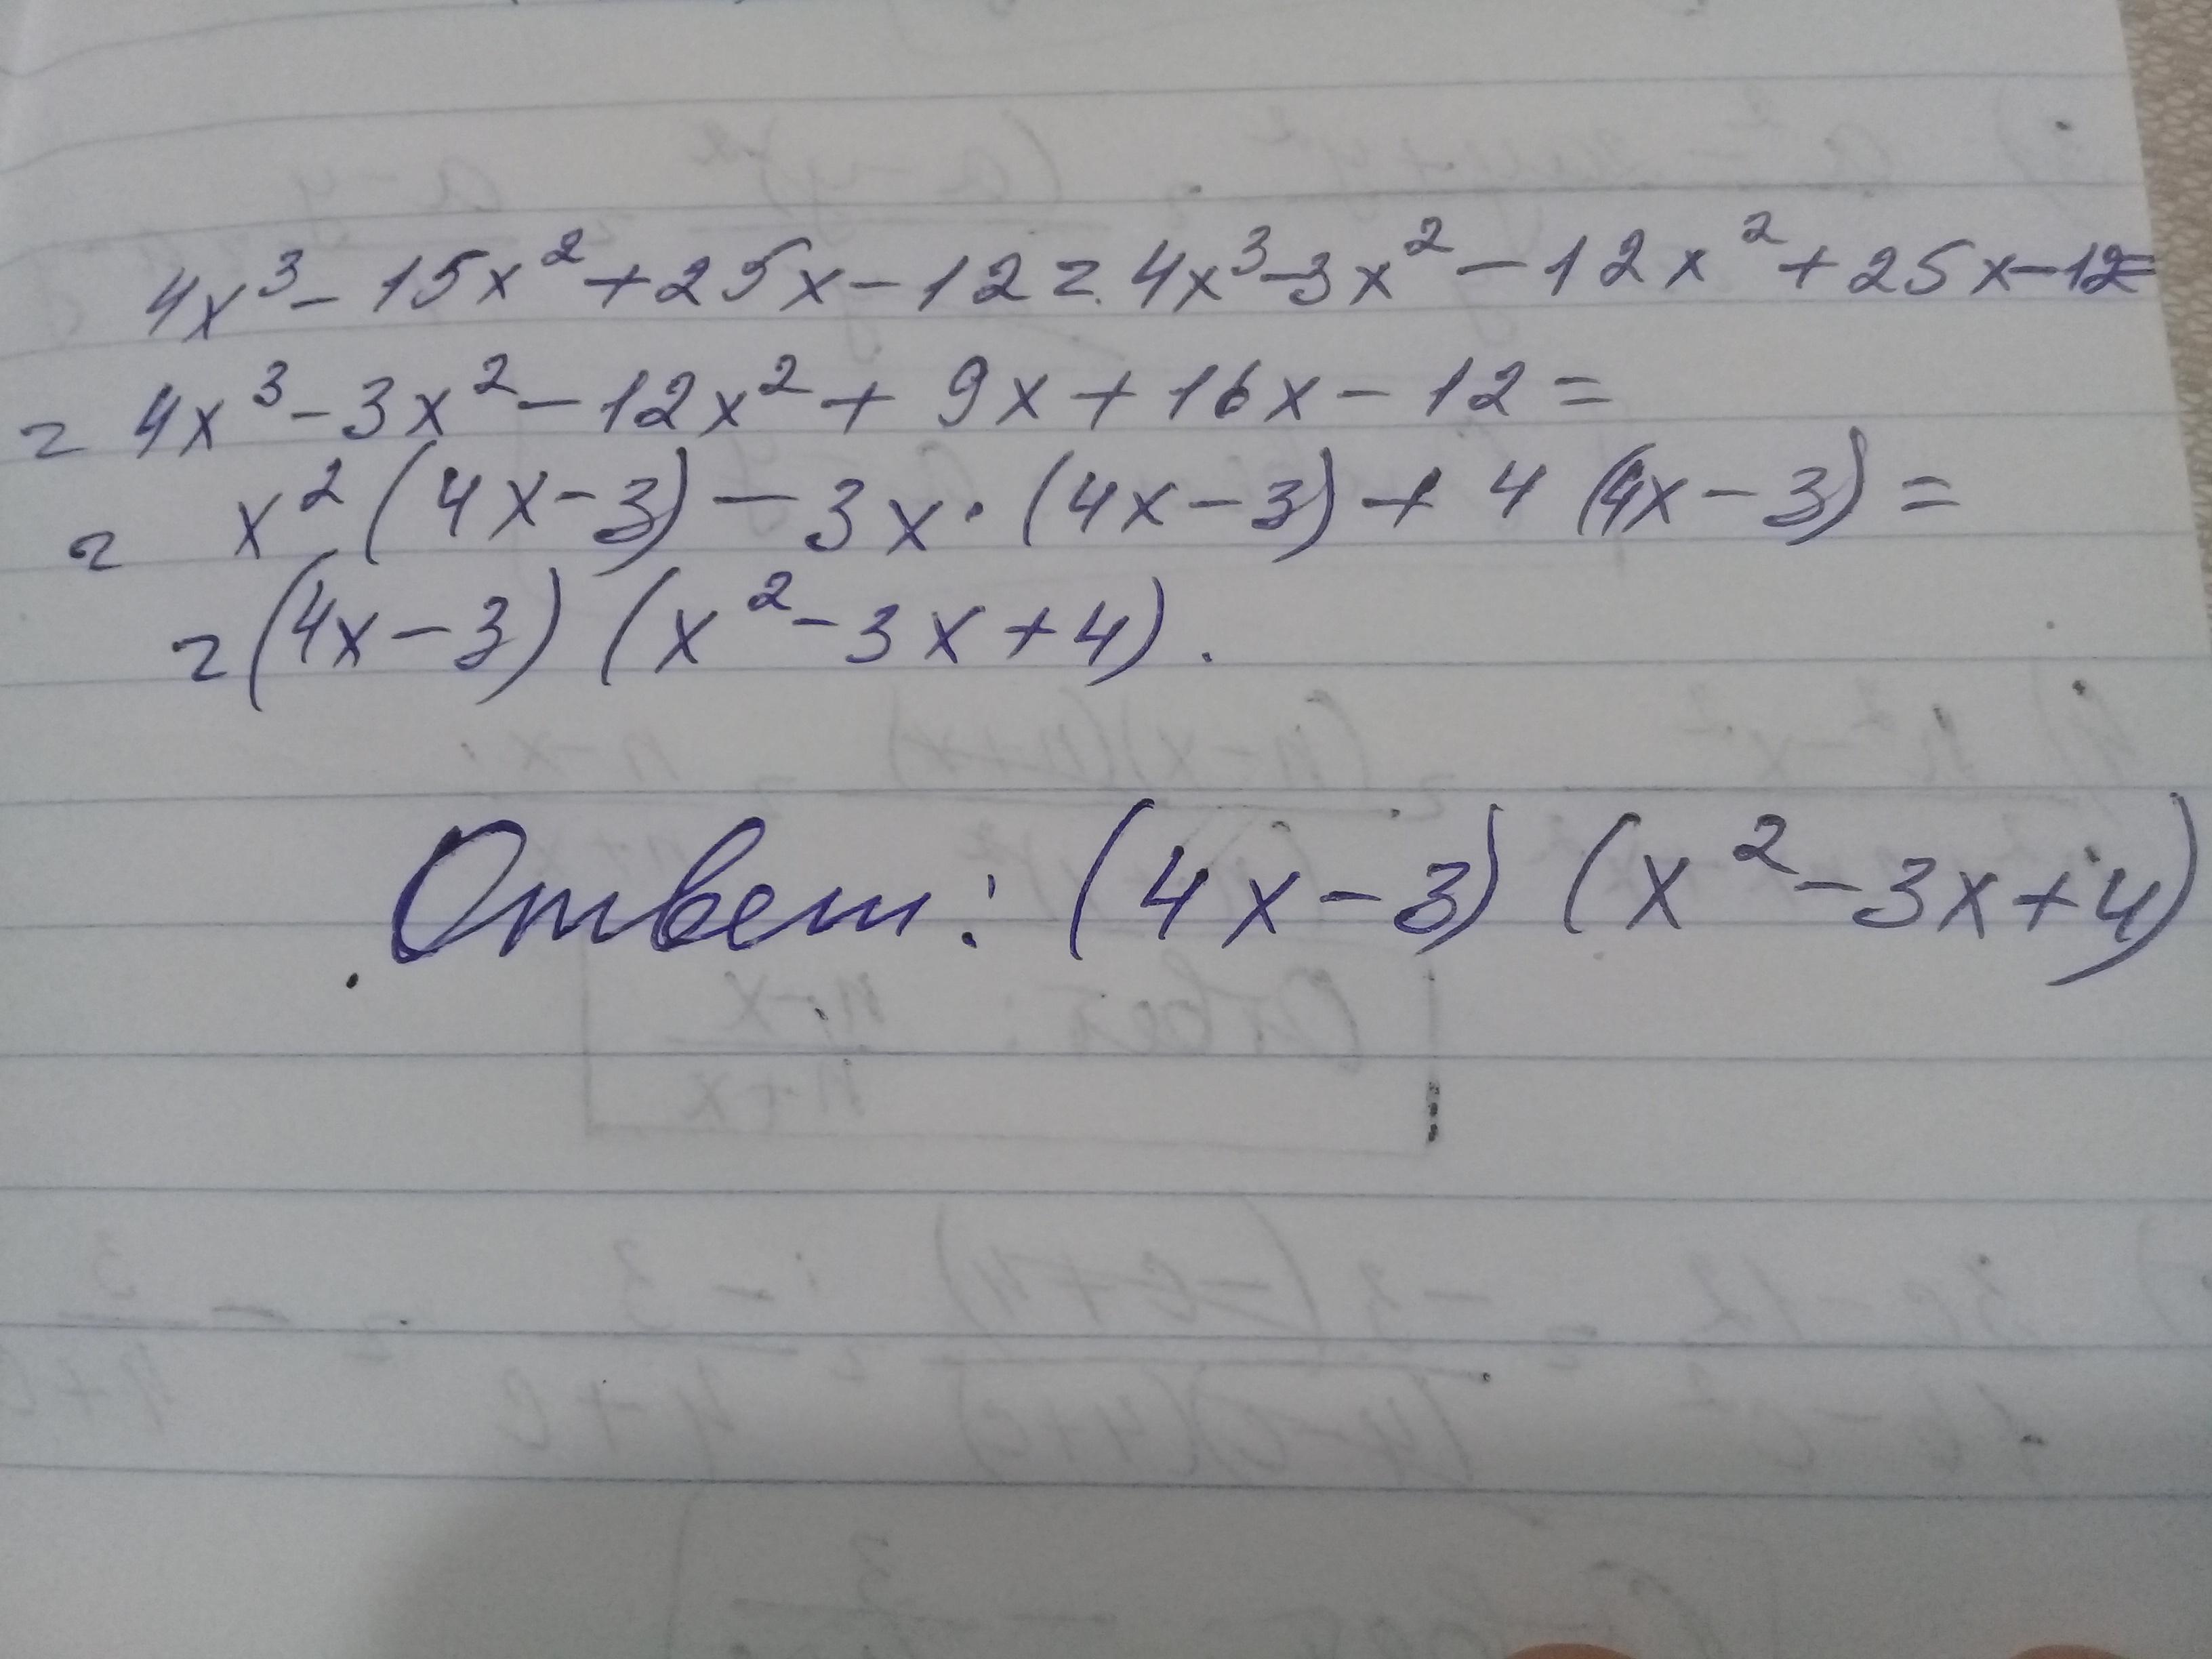 4x³ - 15x² + 25x - 12 = 4x³ - 3x² - 12x² + 25x - 12 =
= 4x³ - 3x² - 12x² + 9x + 16x - 12 =
= x² (4x - 3) - 3x · (4x - 3) + 4 (4x - 3) =
= (4x - 3) (x² - 3x + 4).
Ответ: (4x - 3) (x² - 3x + 4)